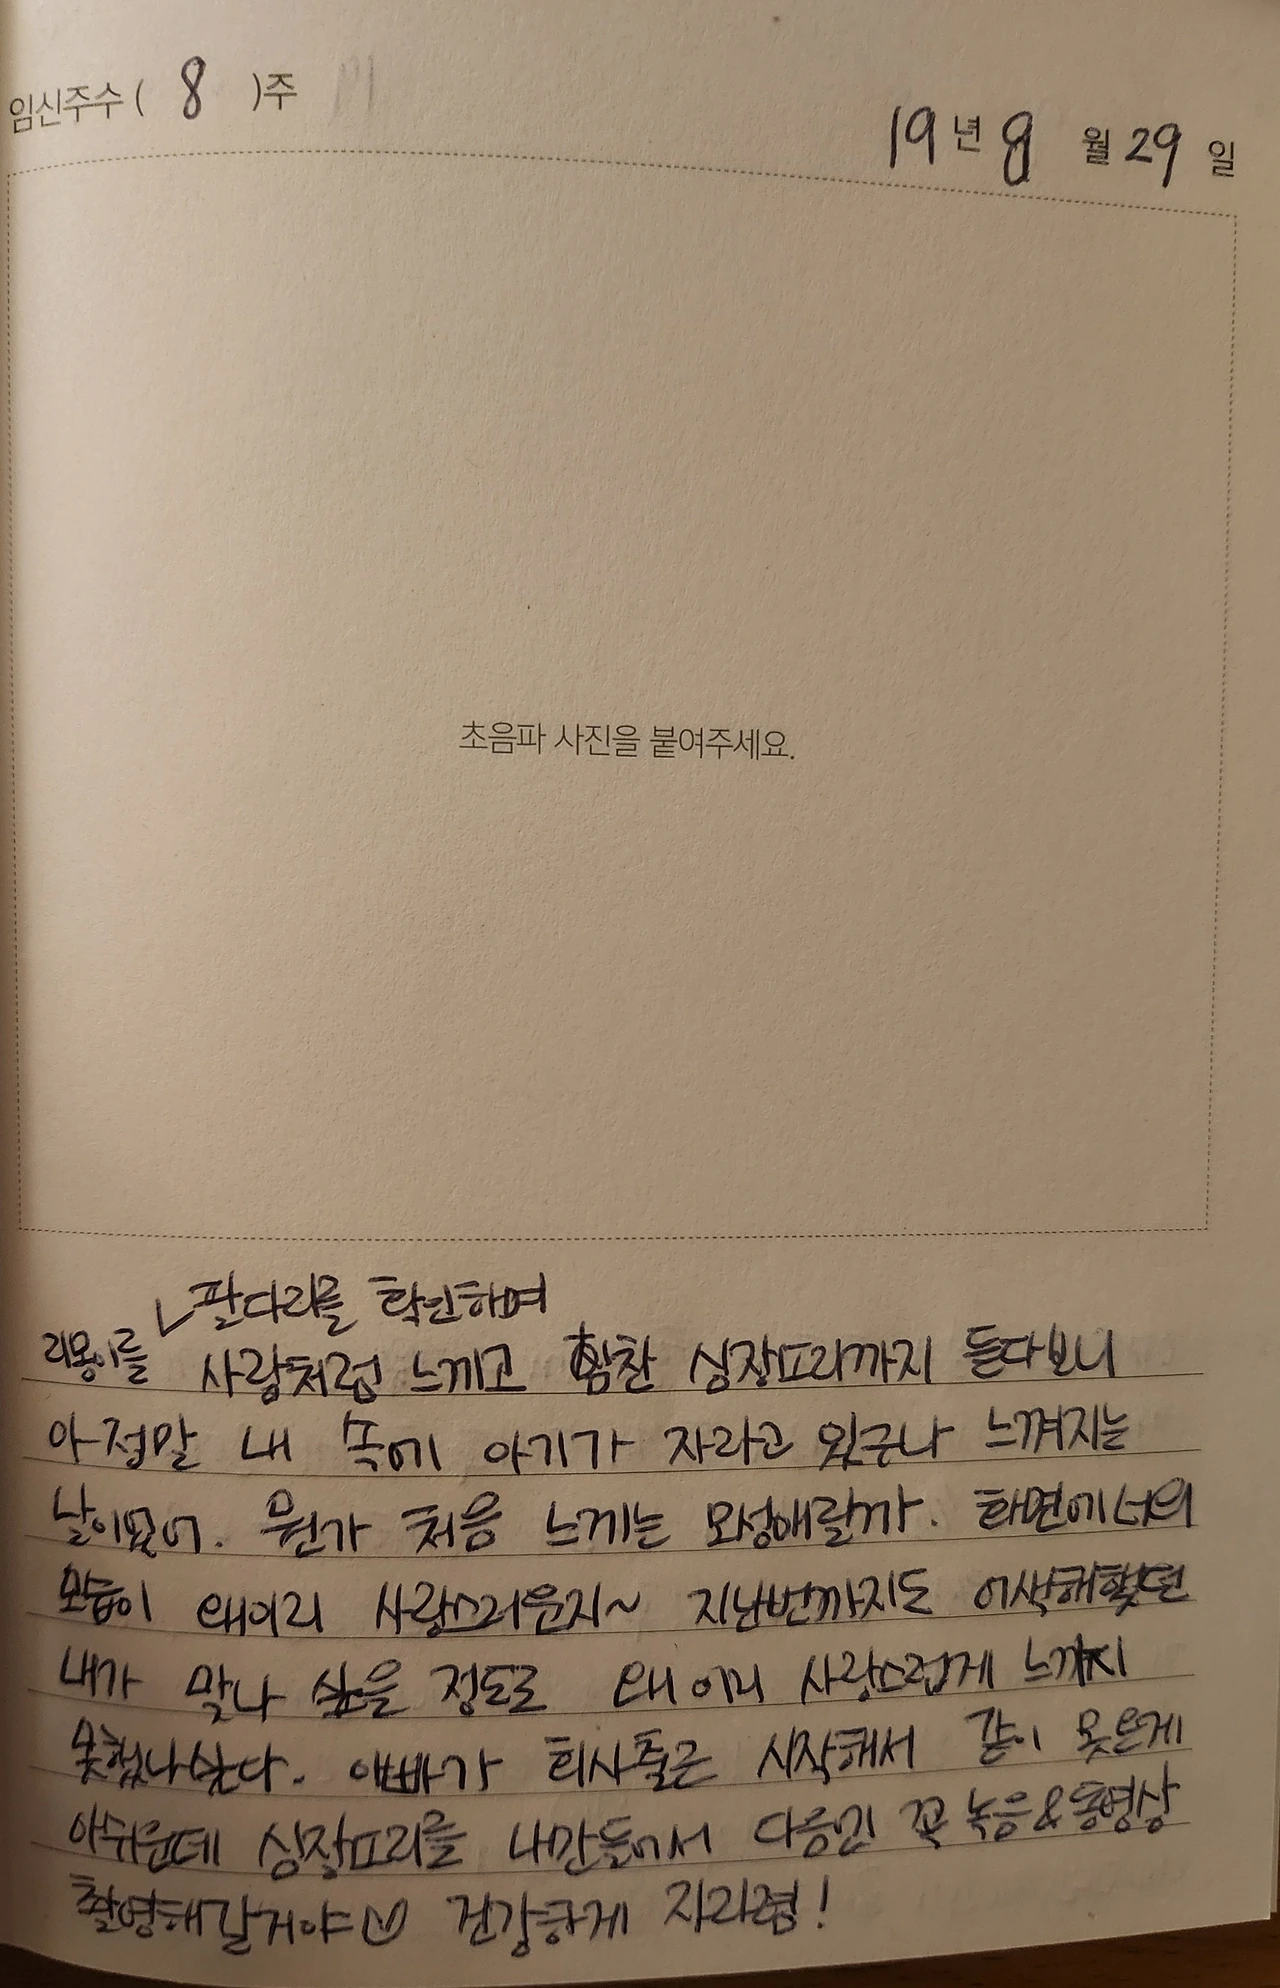 임신주수 ( 8 )주
19년 8월 29일
초음파 사진을 붙여주세요.
✓팔다리를 확인하여
리몽이를 사람처럼 느끼고 힘찬 심장소리까지 듣다보니
아 정말 내 속에 아기가 자라고 있구나 느껴지는
날이었어. 뭔가 처음 느끼는 모성애랄까. 화면에 너의
모습이 왜이리 사랑스러운지~ 지난번까지도 어색해했던
내가 맞나 싶을 정도로 왜 이리 사랑스럽게 느끼지
못했나싶다. 아빠가 회사출근 시작해서 같이 못온게
아쉬운데 심장소리를 나만들어서 다음엔 꼭 녹음&동영상
촬영해갈거야 건강하게 자라렴!